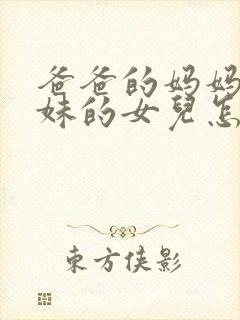 爸爸的妈妈
妹的女兒怎
東方俠影